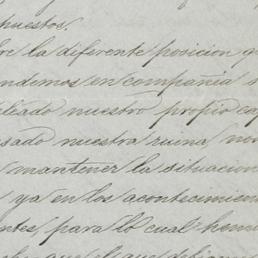 huestos.
re la diferente posicion q
ndemos en compañia
leado nuestro propio ca
sado nuestra ruina no
mantener la situacion
ya en los acontecimien
ntes, para lo cual hem